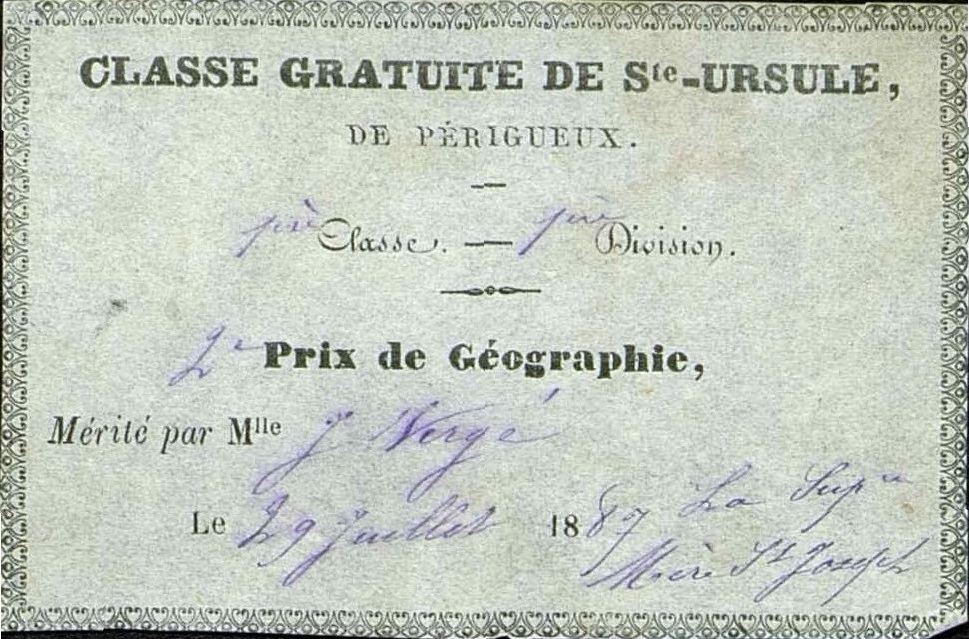 CLASSE GRATUITE DE Ste-URSULE,
DE PÉRIGUEUX.
1ère Classe. — 1ère Division.
2e Prix de Géographie,
Mérité par Mlle J Vergé
Le 29 Juillet 1887 La Supre
Mère St Joseph